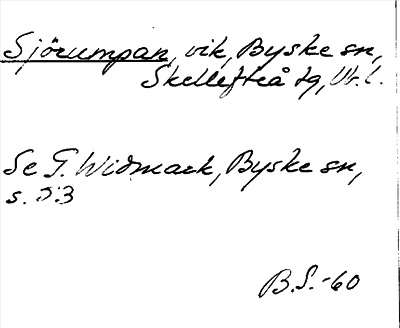 Sjörumpan, vik, Byske sn,
Skellefteå tg, Vb. l.
Se G. Widmark, Byske sn,
s. 53
B.S. -60